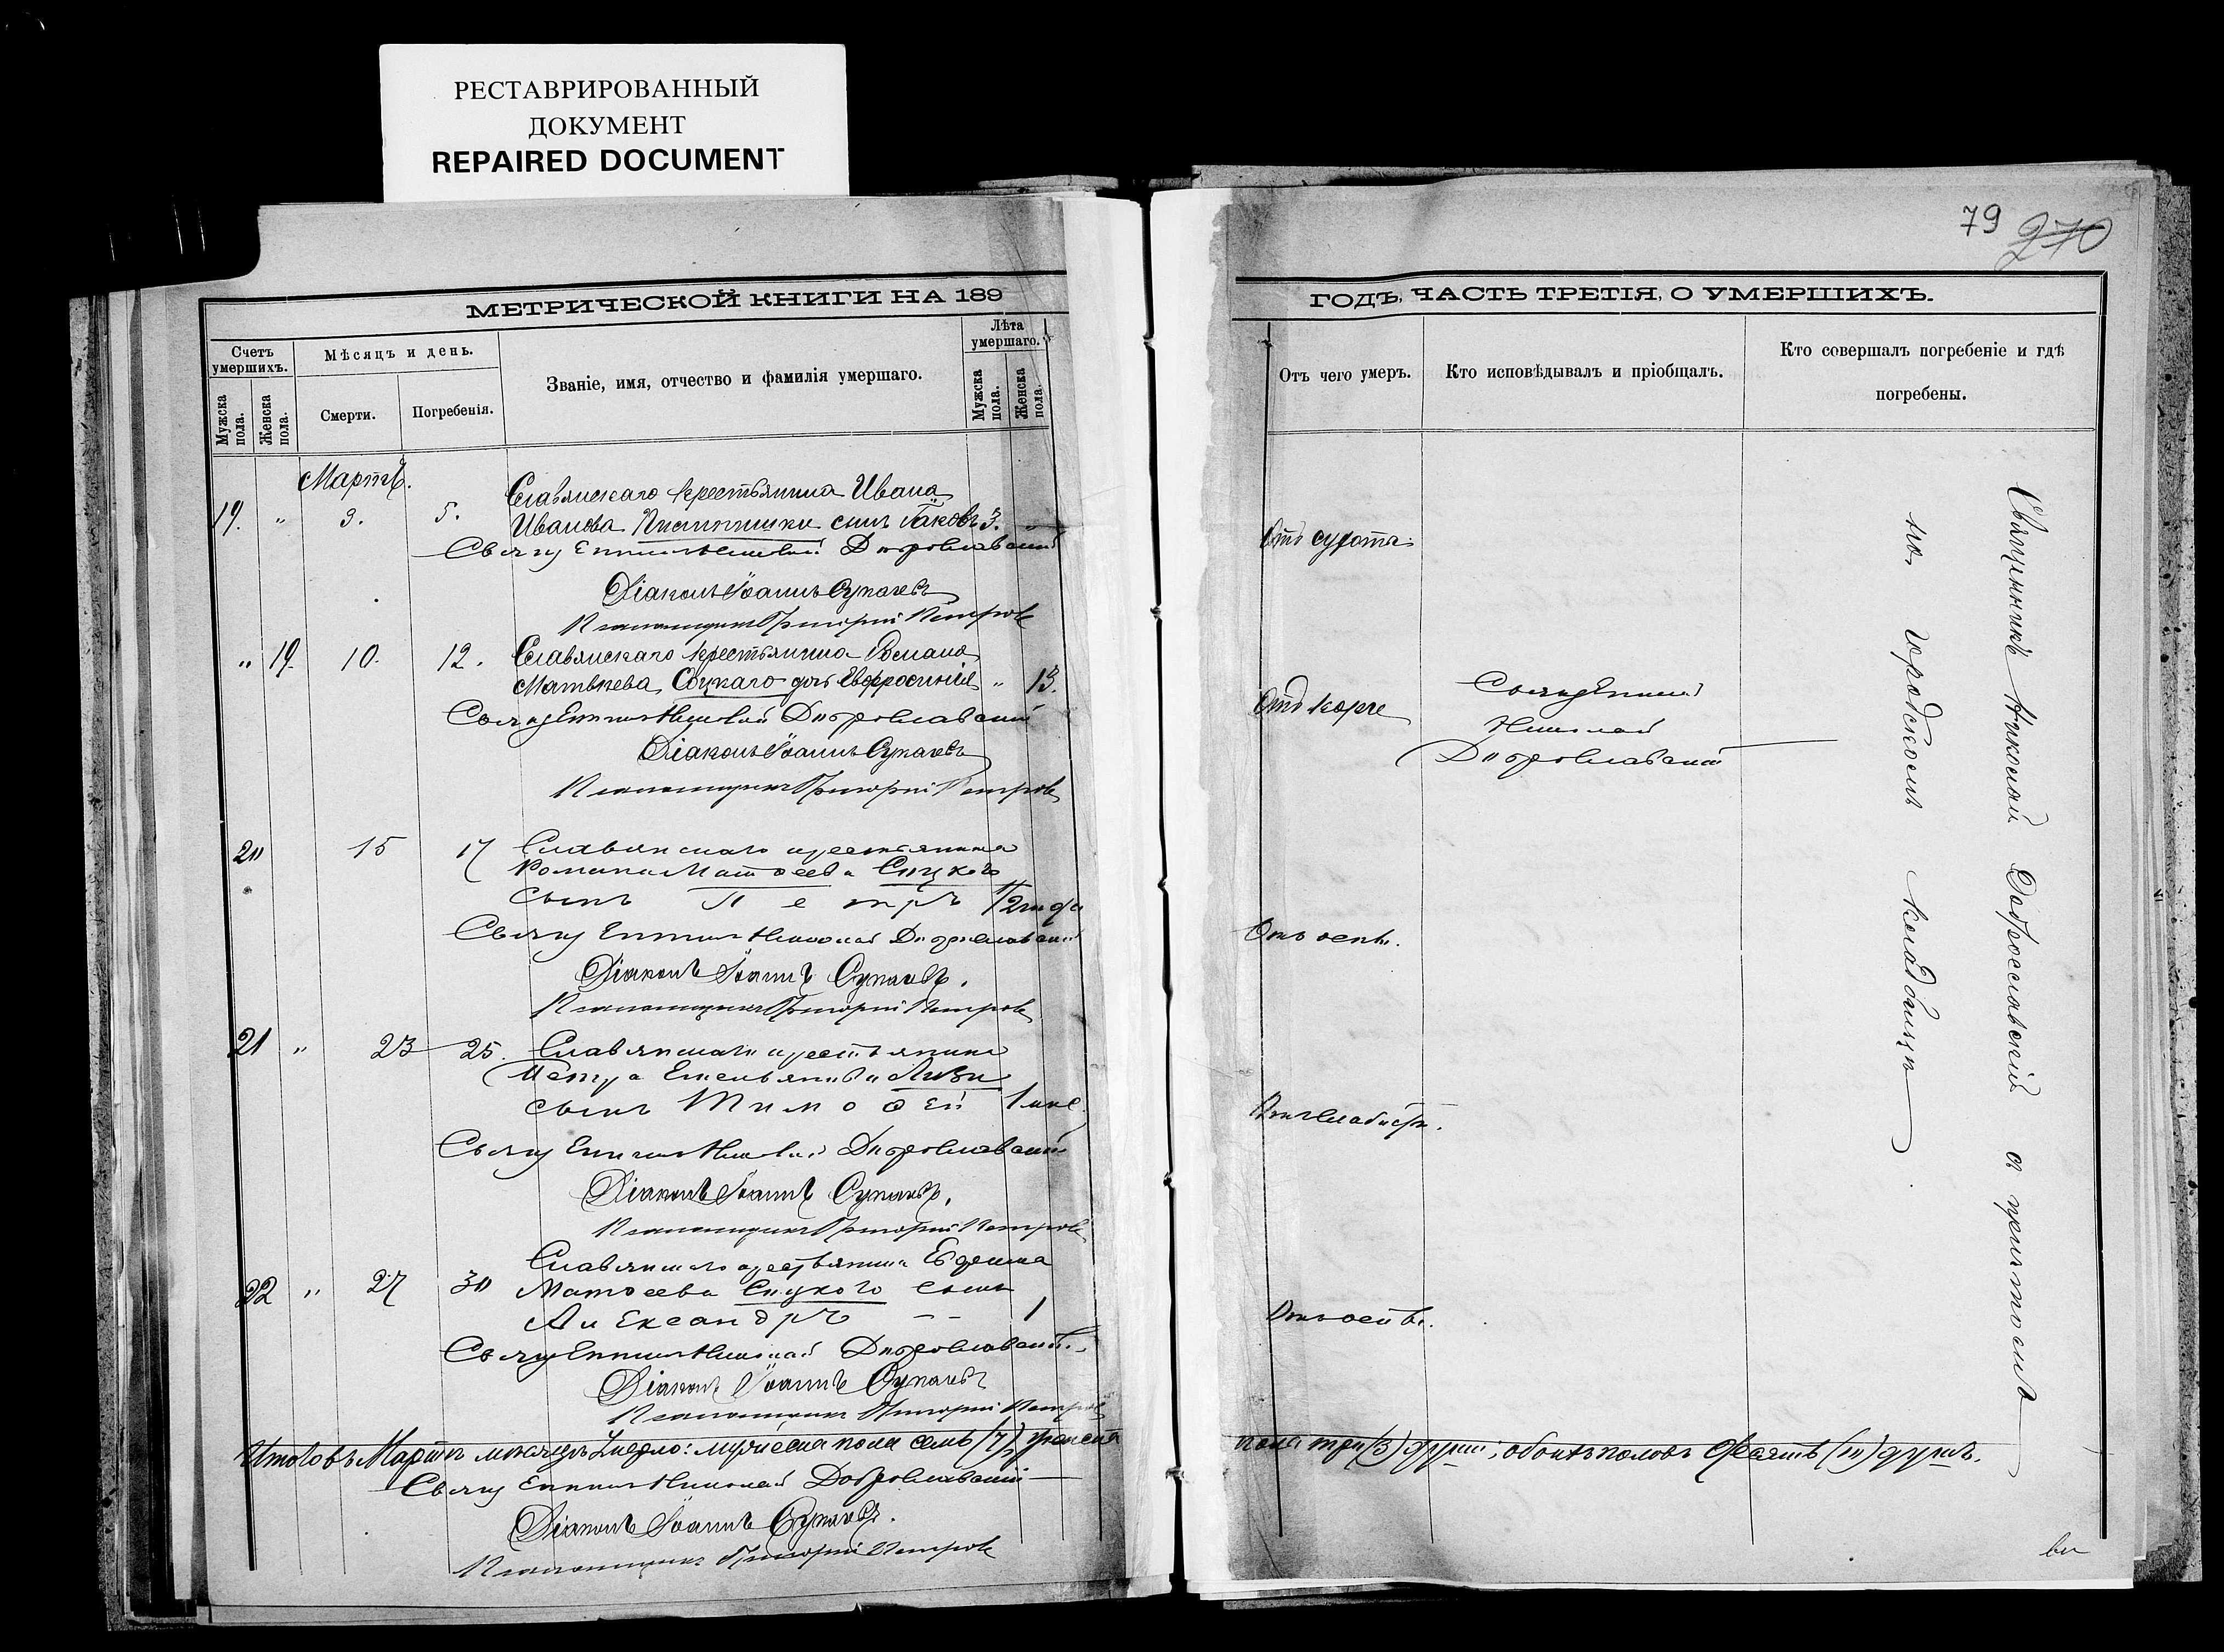 РЕСТАВРИРОВАННЫЙ
ДОКУМЕНТ
REPAIRED DOCUMENT
79 270
МЕТРИЧЕСКОЙ КНИГИ НА 189
Счетъ умершихъ.
Мужска пола.
Женска пола.
Мѣсяцъ и день.
Смерти.
Погребенія.
Званіе, имя, отчество и фамилія умершаго.
Лѣта умершаго.
Мужска пола.
Женска пола.
Мартъ.
Славянскаго крестьянина Ивана
19. " 3. 5. Иванова сынъ Іаковъ 3.
Священникъ Николай Доброславскій
Діаконъ Іоаннъ
Псаломщикъ Григорій Петровъ
" 19. 10. 12. Славянскаго крестьянина Романа
Матвѣева Соцкаго дочь Евфросинія " 13.
Священникъ Николай Доброславскій
Діаконъ Іоаннъ
Псаломщикъ Григорій Петровъ
20 15 17 Славянскаго крестьянина
Романа Матѳеева Соцкого
сынъ Петръ 1/2 года
Священникъ Николай Доброславскій
Діаконъ Іоаннъ
Псаломщикъ Григорій Петровъ
21 " 23 25. Славянскаго крестьянина
Петра Емельянова
сынъ Тимоѳей 1 мѣс.
Священникъ Николай Доброславскій
Діаконъ Іоаннъ
Псаломщикъ Григорій Петровъ
Славянскаго крестьянина
22 " 27 30 Матѳеева Соцкого сынъ
Александръ - - 1
Священникъ Николай Доброславскій
Діаконъ Іоаннъ
Псаломщикъ Григорій Петровъ
Итого въ Мартѣ мѣсяцѣ умерло: мужеска пола семь (7), женска
Священникъ Николай Доброславскій
Діаконъ Іоаннъ
Псаломщикъ Григорій Петровъ
ГОДЪ, ЧАСТЬ ТРЕТІЯ, О УМЕРШИХЪ.
Отъ чего умеръ.
Кто исповѣдывалъ и пріобщалъ.
Кто совершалъ погребеніе и гдѣ
погребены.
Отъ
Отъ корче
Священникъ
Николай
Доброславскій
Отъ оспы.
Отъ слабости.
Отъ оспы.
Священникъ Николай Доброславскій съ причтомъ
на городскомъ кладбищѣ
пола три (3) души; обоихъ половъ десять (10) душъ.